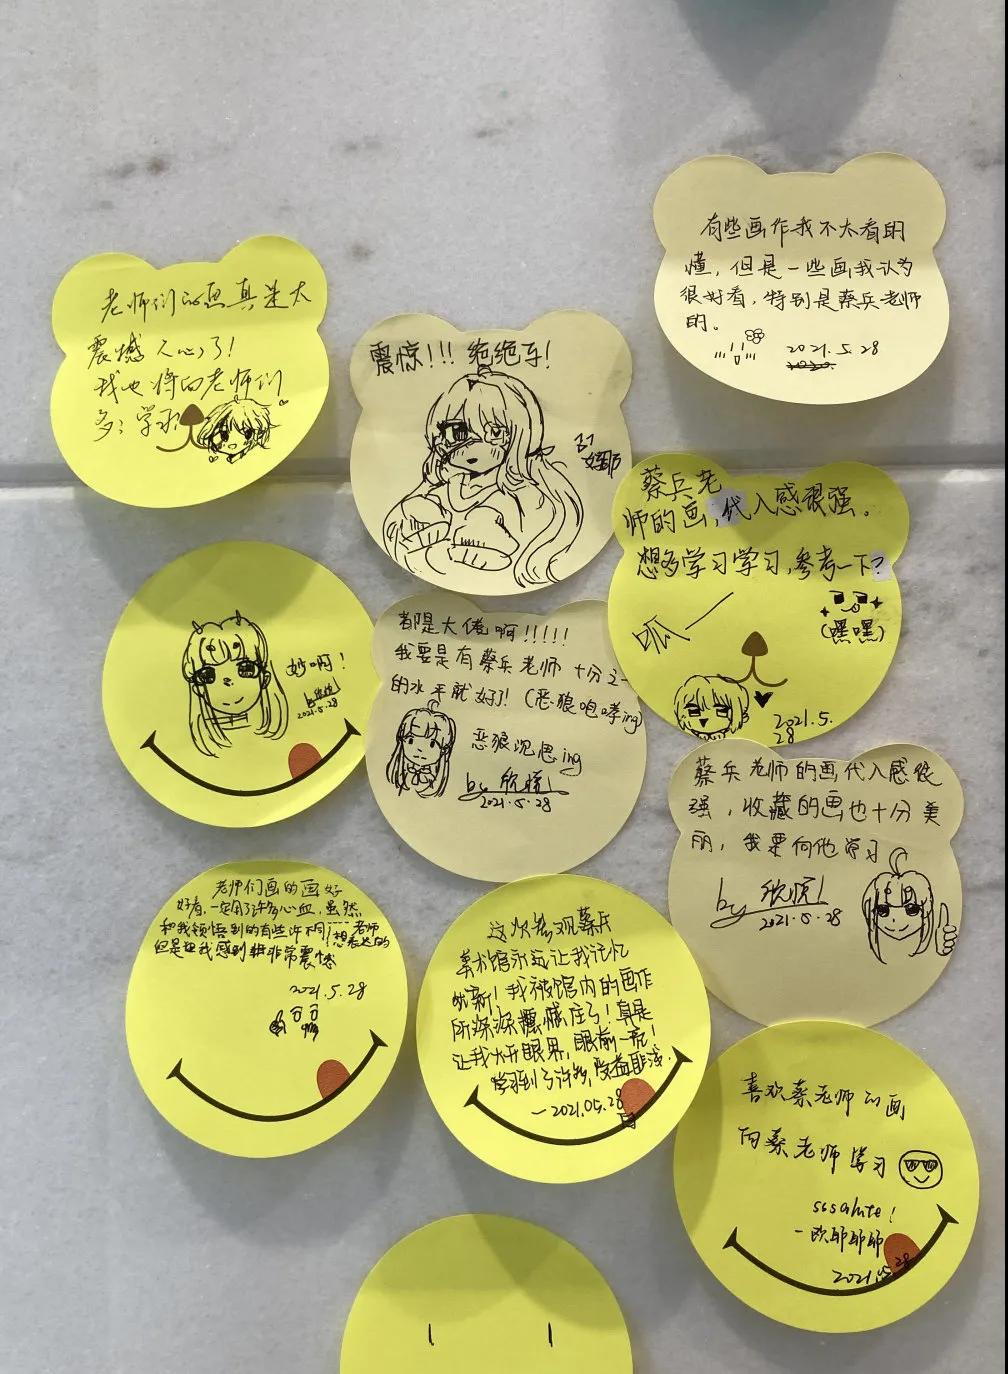 有些画作我不太看明
懂，但是一些画我认为
很好看，特别是蔡兵老师
的。
2021.5.28
老师们的画真是太
震撼人心了！
我也将向老师们
多学习
震惊！！！绝绝子！
蔡兵老
师的画，代入感很强。
想多学习学习，参考一下？
呱
（嘿嘿）
2021.5.
28
妙啊！
2021.5.28
都是大佬啊！！！！！
我要是有蔡兵老师十分之一
的水平就好了！（恶狼咆哮ing）
恶狼沉思ing
by 欣悦
2021.5.28
蔡兵老师的画代入感很
强，收藏的画也十分美
丽，我要向他学习
by 欣悦
2021.5.28
老师们画的画好
好看，一定用了许多心血，虽然
和我领悟到的有些许不同
老师
想表达的
但是把我感到非常震憾
2021.5.28
这次参观蔡兵
美术馆永远让我记忆
犹新！我被馆内的画作
所深深震憾住了！真是
让我大开眼界，眼前一亮！
学习到了许多，受益匪浅.
-2021.05.28
喜欢蔡老师的画
向蔡老师学习
sssalute！
2021.5.28